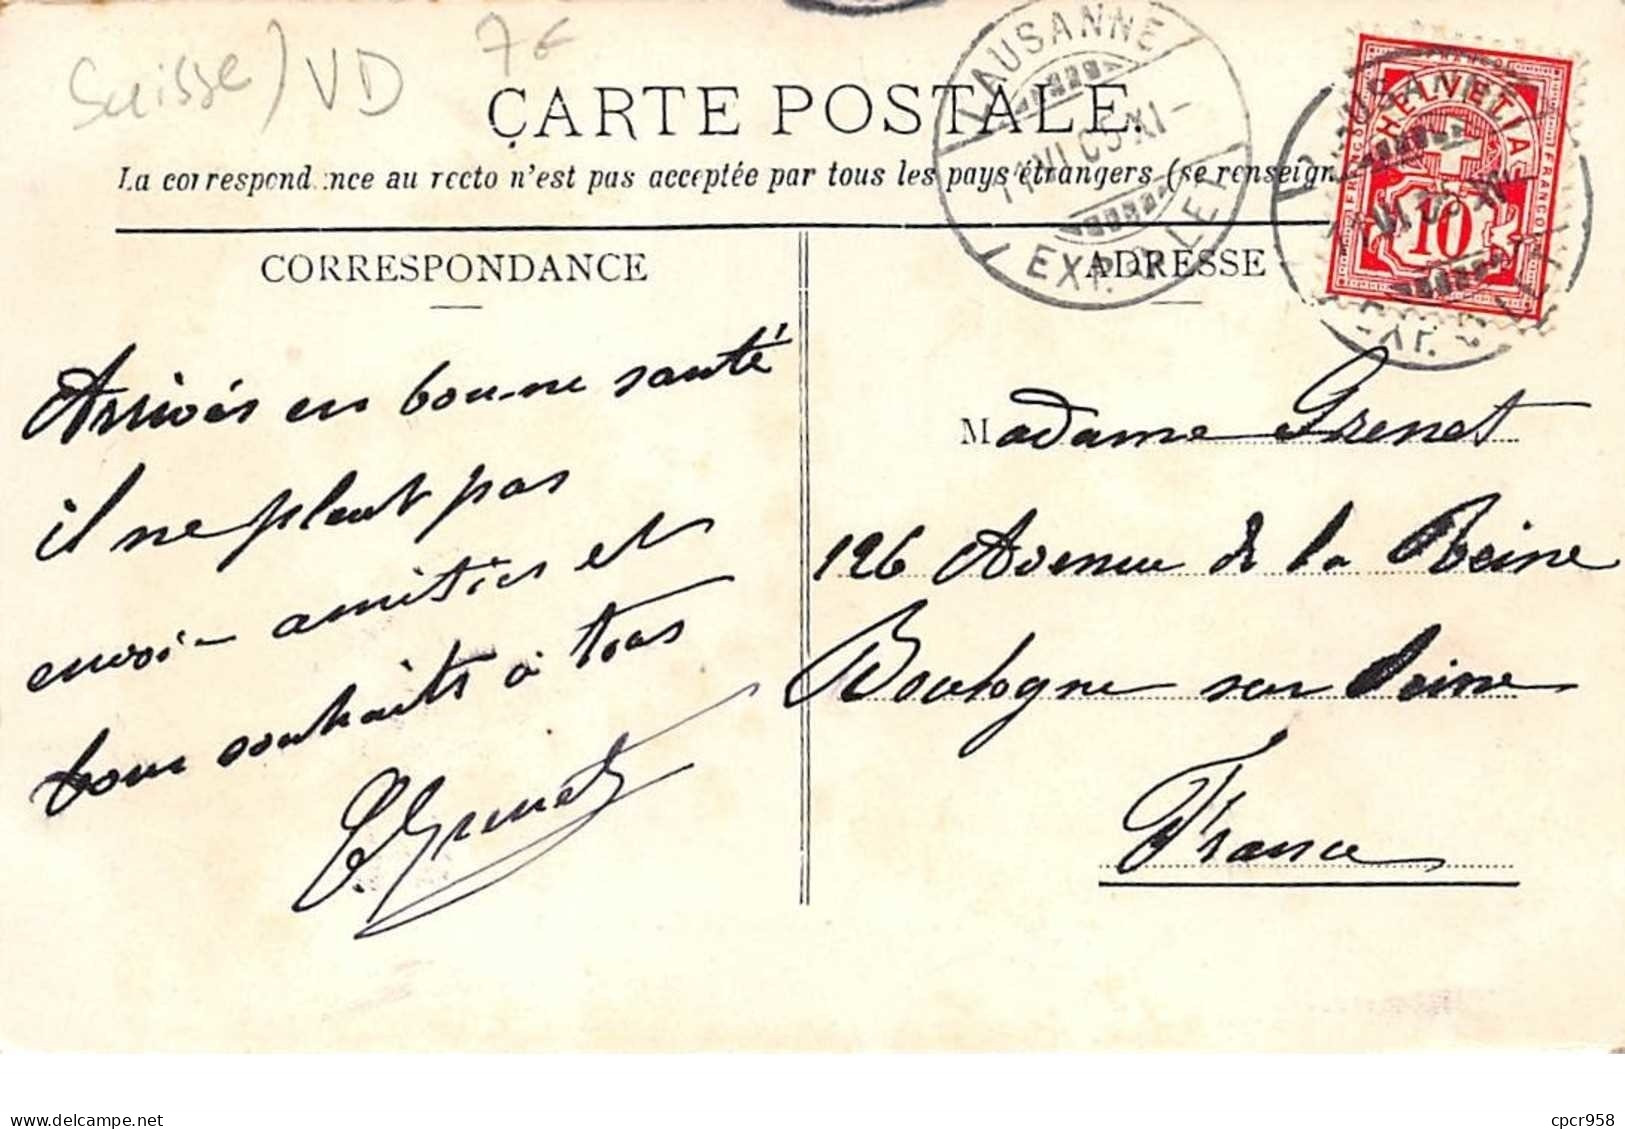 Suisse/VD 7€
CARTE POSTALE.
La correspondance au recto n'est pas acceptée par tous les pays étrangers (se renseign
CORRESPONDANCE
ADRESSE
LAUSANNE
EXP. LET.
HELVETIA
FRANCO FRANCO
10
Arrivés en bonne santé
il ne pleut pas
envoi amitiés et
bons souhaits à tous
E. Grenet
Madame Grenet
126 Avenue de la Reine
Boulogne sur Seine
France
cpcr958